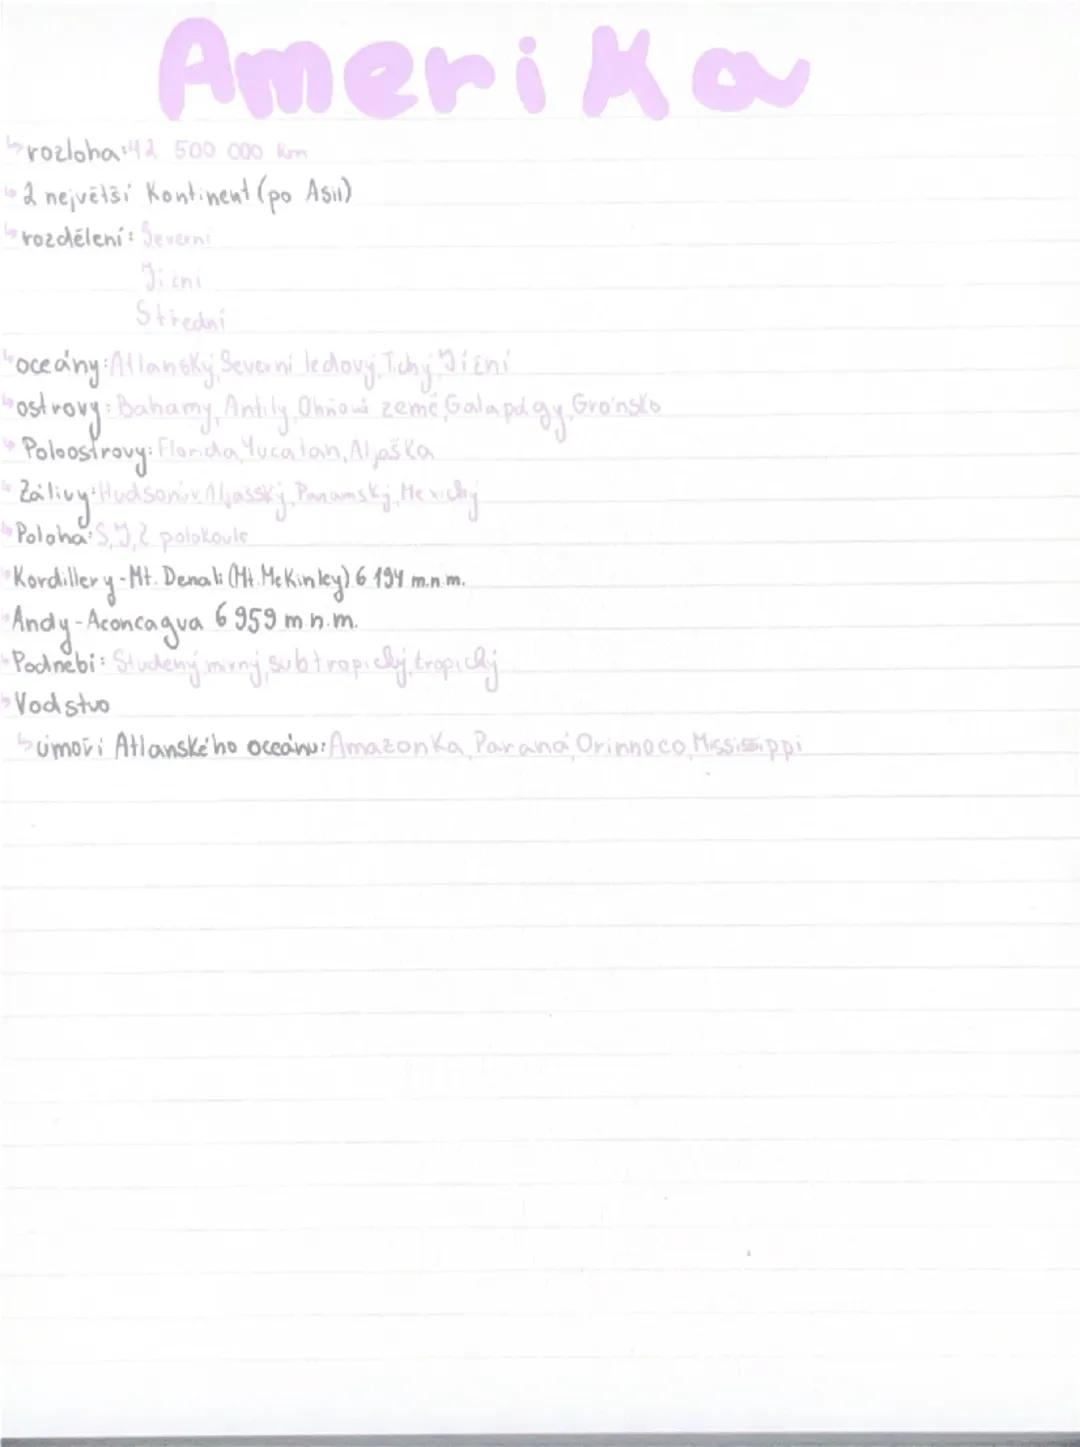 Amerika
↳rozloha:42 500 000 km
↳2 největší Kontinent (po Asii)
↳rozdělení: Severní
Jižní
Střední
↳oceány: Atlanský, Severní ledový, Tichý, Jižní
↳ostrovy: Bahamy, Antily, Ohňová země, Galapágy, Grónsko
↳Poloostrovy: Florida, Yucatan, Aljaška
↳Zálivy: Hudsonův, Aljašský, Panamský, Mexický
↳Poloha: S, J, Z polokoule
↳Kordillery - Mt. Denali (Mt. McKinley) 6 194 m.n.m.
↳Andy - Aconcagua 6 959 m.n.m.
↳Podnebí: Studený, mírný, subtropický, tropický
↳Vodstvo
↳úmoří Atlanského oceánu: Amazonka, Paraná, Orinnoco, Mississippi